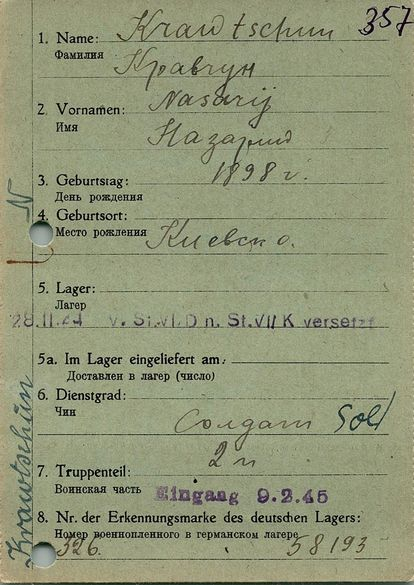 357
1. Name: Krawtschun
Фамилия Кравчун
2. Vornamen: Nasarij
Имя Назарий
3. Geburtstag: 1898 г.
День рождения
N
4. Geburtsort:
Место рождения Киевск о.
5. Lager:
Лагер
28.11.44 v. St.VI.D n. St.VI/K versetzt
5a. Im Lager eingeliefert am:
Доставлен в лагер (число)
6. Dienstgrad:
Чин Солдат Sold
7. Truppenteil: 2 п
Воинская часть Eingang 9.2.45
8. Nr. der Erkennungsmarke des deutschen Lagers:
Номер военнопленного в германском лагере
326. 58193
Krawtschun